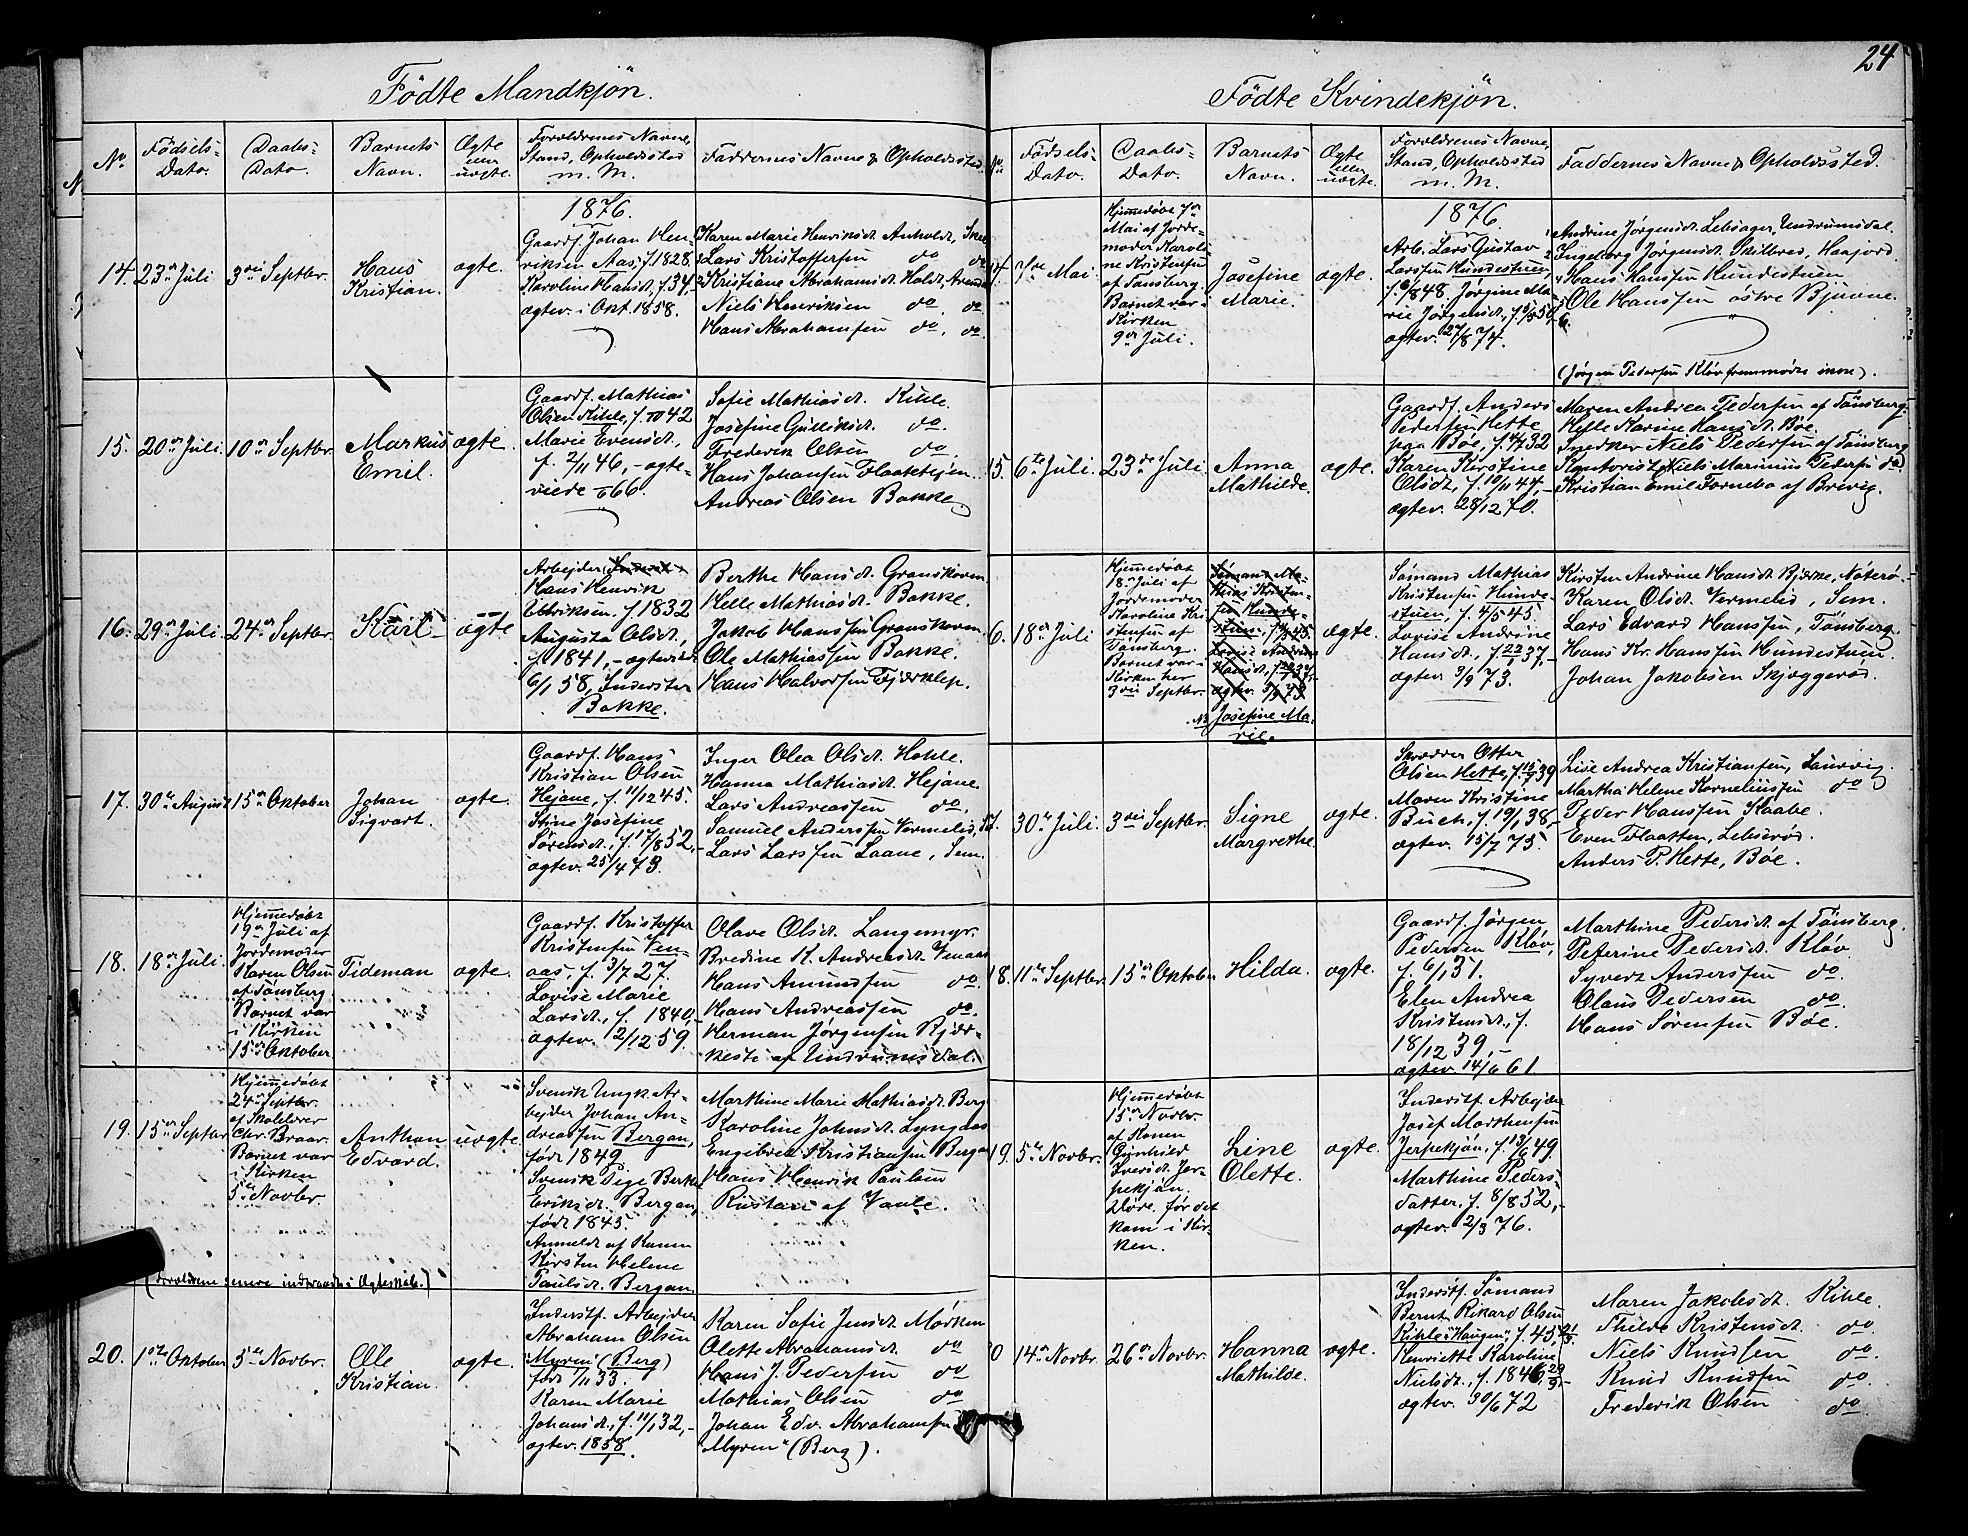 24
Födte Mandkjön.
No.
Födsels-
Dato.
Daabs-
Dato.
Barnets
Navn.
Ægte
eller
uægte.
Forældrenes Navne,
Stand, Opholdssted
m. M.
Faddernes Navne & Opholdssted.
14.
23de Juli
3die Septbr.
Hans
Kristian.
ægte.
1876.
Gaardf. Johan Hen-
riksen Aas, f. 1828.
Karoline Hansdt., f. 34,-
ægtev. i Okt. 1858.
Karen Marie Henriksdt. Anholdt,
Lars Kristoffersen do do
Kristiane Abrahamsdt. Holdt,
Niels Henriksen do. do.
Hans Abrahamsen do. do.
15.
20de Juli.
10de Septbr.
Markus
Emil.
ægte.
Gaardf. Mathias
Olsen Kihle, f. 42
Marie Evensdt.,
f. 2/11 46, - ægte-
viede 66.
Sofie Mathiasdt. Kihle.
Josefine Gulliksdt. do.
Frederik Olsen do.
Hans Johansen Flaateien.
Andreas Olsen Bakke.
16.
29de Juli.
24de Septbr.
Karl
ægte
Arbejder
Hans Henrik
Ulriksen. f. 1832
Augusta Olsdt.,
f. 1841, - ægteviede
6/1 58, Inderster
Bakke.
Berthe Hansdt. Granskoven.
Helle Mathiasdt. Bakke.
Jakob Hanssen Granskoven.
Ole Mathiassen Bakke.
Hans Halvorsen Fjærklep.
17.
30te August
15de Oktober
Johan
Sigvart.
ægte.
Gaardf. Hans
Kristian Olsen
Hejane, f. 11/12 45.
Stine Josefine
Sørensdt., f. 17/8 52,-
ægtev. 25/4 73.
Inger Olea Olsdt. Hehle.
Hanna Mathiasdt. Hejane.
Lars Andreassen do.
Samuel Anderssen Vermelid,
Lars Larssen Laane, Sem.
18.
18de Juli.
Hjemmedöbt
19de Juli af
Jordemoder
Karen Olsen
af Tönsberg
Barnet var
i Kirken
15de Oktober
Tideman
ægte.
Gaardf. Kristoffer
Kristensen Ven-
aas, f. 3/7 27.
Lovise Marie
Larsdt., f. 1840,
ægtev. 12/12 59.
Olave Olsdt. Langemyr.
Bredine K. Andreasdt. Venaas
Hans Amundsen do.
Hans Andreassen do.
Herman Jörgensen Bjær-
keste af Undrumsdal.
19.
15de Septbr
Hjemmedöbt
24de Septbr.
af Skolelærer
Chr. Braar.
Barnet var
i Kirken
5te Novbr.
Anthon
Edvard.
uægte.
Svensk Ungk. Ar-
bejder Johan An-
dreassen Bergan,
født 1849
Svensk Pige Berthe
Eriksdt. Bergan,
født 1845.
Anmeldt af Konen
Kirsten Helene
Paulsdt. Bergan.
Marthine Marie Mathiasdt. Berg
Karoline Johnsdt. Lyngaas
Engebret Kristiansen Bergan
Hans Henrik Paulsen
Rustan af Vaale.
(Forældrene senere indtraadt i Ægteskab.)
20.
1ste Oktober
5te Novbr.
Ole
Kristian.
ægte.
Inderstf. Arbejder
Abraham Olsen
"Myren" (Berg)
født 7/11 33.
Karen Marie
Johansdt., f. 11/1 32,-
ægtev. 1858.
Karen Sofie Jensdt. Mörken
Olette Abrahamsdt. do
Hans J. Pedersen do
Mathias Olsen do
Johan Edv. Abrahamsen
"Myren" (Berg).
Födte Kvindekjön.
No.
Födsels-
Dato.
Daabs-
Dato.
Barnets
Navn.
Ægte
eller
uægte.
Forældrenes Navne,
Stand, Opholdssted
m. M.
Faddernes Navne & Opholdssted.
14.
7de Mai.
Hjemmedøbt 7de
Mai af Jorde-
moder Karoli-
ne Kristensen
af Tönsberg.
Barnet var i
Kirken
9de Juli.
Josefine
Marie.
ægte.
1876
Arb. Lars Gustav
Larssen Hundestuen,
f. 6/8 48. Jørgine Ma-
rie Jørgensdt., f. 9/5 50,-
ægtev. 27/8 74.
Andrine Jørgensdt. Lebsager, Undrumsdal.
Ingeborg Jørgensdt. Skilbred, Haafjord.
Hans Hanssen Hundestuen
Ole Hanssen østre Bjuvne.
(Jørgen Pedersen Kløv fremmødte ikke).
15.
6te Juli.
23de Juli.
Anna
Mathilde.
ægte.
Gaardf. Anders
Pedersen Hette
paa Böe, f. 4/4 32
Karen Kirstine
Olsdt., f. 10/11 44,-
ægtev. 28/12 70.
Maren Andrea Pedersen af Tönsberg.
Helle Marine Hansdt. Böe.
Snedker Niels Pedersen af Tönsberg
Kontorist Niels Marinius Pedersen do
Kristian Emil Fornebo af Brevig.
16.
18de Juli
Hjemmedöbt
18de Juli af
Jordemoder
Karoline Kri-
stensen af
Tönsberg.
Barnet var i
Kirken her
3die Septbr.
Sømand Ma-
thias Kristen-
sen Hunde-
stuen, f. 4/5 45.
Lovise Andrine
Hansdt., f. 22/1 37,-
ægtev. 3/9 73
Josefine Ma-
rie.
ægte.
Sømand Mathias
Kristensen Hunde-
stuen, f. 4/5 45.
Lovise Andrine
Hansdt., f. 22/1 37,-
ægtev. 3/9 73.
Kirsten Andrine Hansdt. Bjerke, Nöterö.
Karen Olsdt. Vermelid, Sem.
Lars Edvard Hanssen, Tönsberg.
Hans Kr. Hanssen Hundestuen.
Johan Jakobsen Skjæggerød.
17.
30te Juli.
3die Septbr.
Signe
Margrethe
ægte.
Skrædder Otter
Olsen Hette, f. 15/7 39
Maren Kristine
Buch, f. 19/1 38,-
ægtev. 15/7 75.
Lise Andrea Kristiansen, Laurvig.
Martha Helene Korneliussen do
Peder Hanssen Kaabe.
Even Flaatten, Lebserød.
Anders P. Hette, Böe.
18.
11te Septbr.
15de Oktober
Hilda.
ægte.
Gaardf. Jörgen
Pedersen Klöv,
f. 6/1 31.
Elen Andrea
Kristensdt., f.
18/12 39, -
ægtev. 14/6 61
Marthine Pedersdt. af Tönsberg.
Peterine Pedersdt. Klöv.
Syvert Anderssen do.
Olaus Pedersen do.
Hans Sørensen Böe.
19.
5te Novbr.
Hjemmedöbt
15de Novbr.
af Konen
Gunhild
Iversdt. Jer-
pekjøn.
Döde før det
kom i Kir-
ken.
Line
Olette.
ægte.
Inderstf. Arbejder
Josef Marthensen
Jerpekjön, f. 13/6 49
Marthine Peders-
datter, f. 8/8 52,-
ægtev. 2/3 76.
20
14de Novbr.
26de Novbr.
Hanna
Mathilde.
ægte.
Inderstf. Sømand
Bernt Rikard Olsen
Kihle "Haugen", f. 45
Henriette Karoline
Nielsdt., f. 1846,
ægtev. 30/6 72
Maren Jakobsdt. Kihle.
Thilde Kristensdt. do.
Niels Knudsen do.
Knud Knudsen do.
Frederik Olsen do.